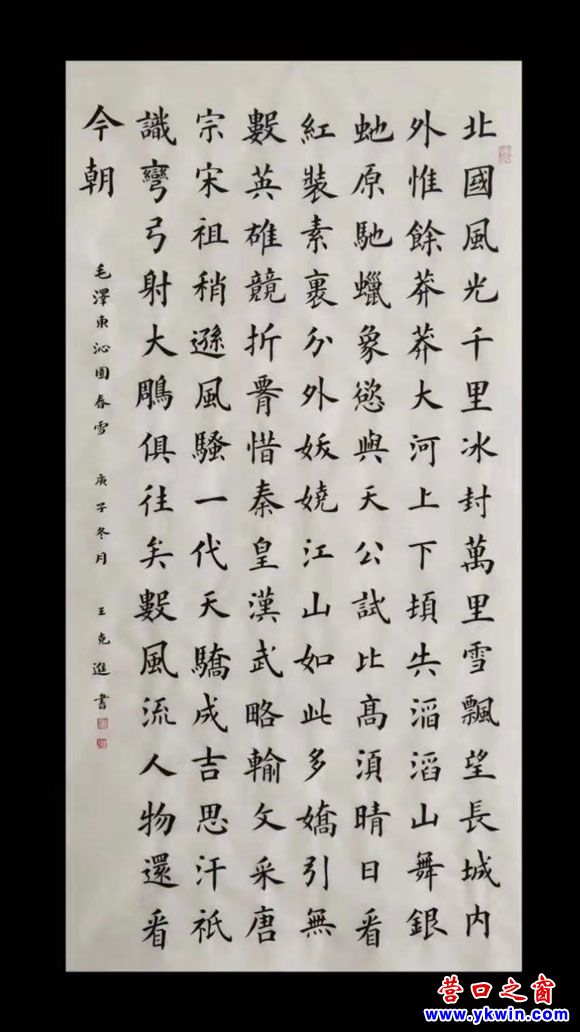 北國風光千里冰封萬里雪飄望長城内
外惟餘莽莽大河上下頓失滔滔山舞銀
虵原馳蠟象慾與天公試比高須晴日看
紅裝素裹分外妖嬈江山如此多嬌引無
數英雄競折腰惜秦皇漢武略輸文采唐
宗宋祖稍遜風騷一代天驕成吉思汗祇
識彎弓射大鵰俱往矣數風流人物還看
今朝
毛澤東沁園春雪 庚子冬月 王克進書
营口之窗
www.ykwin.com